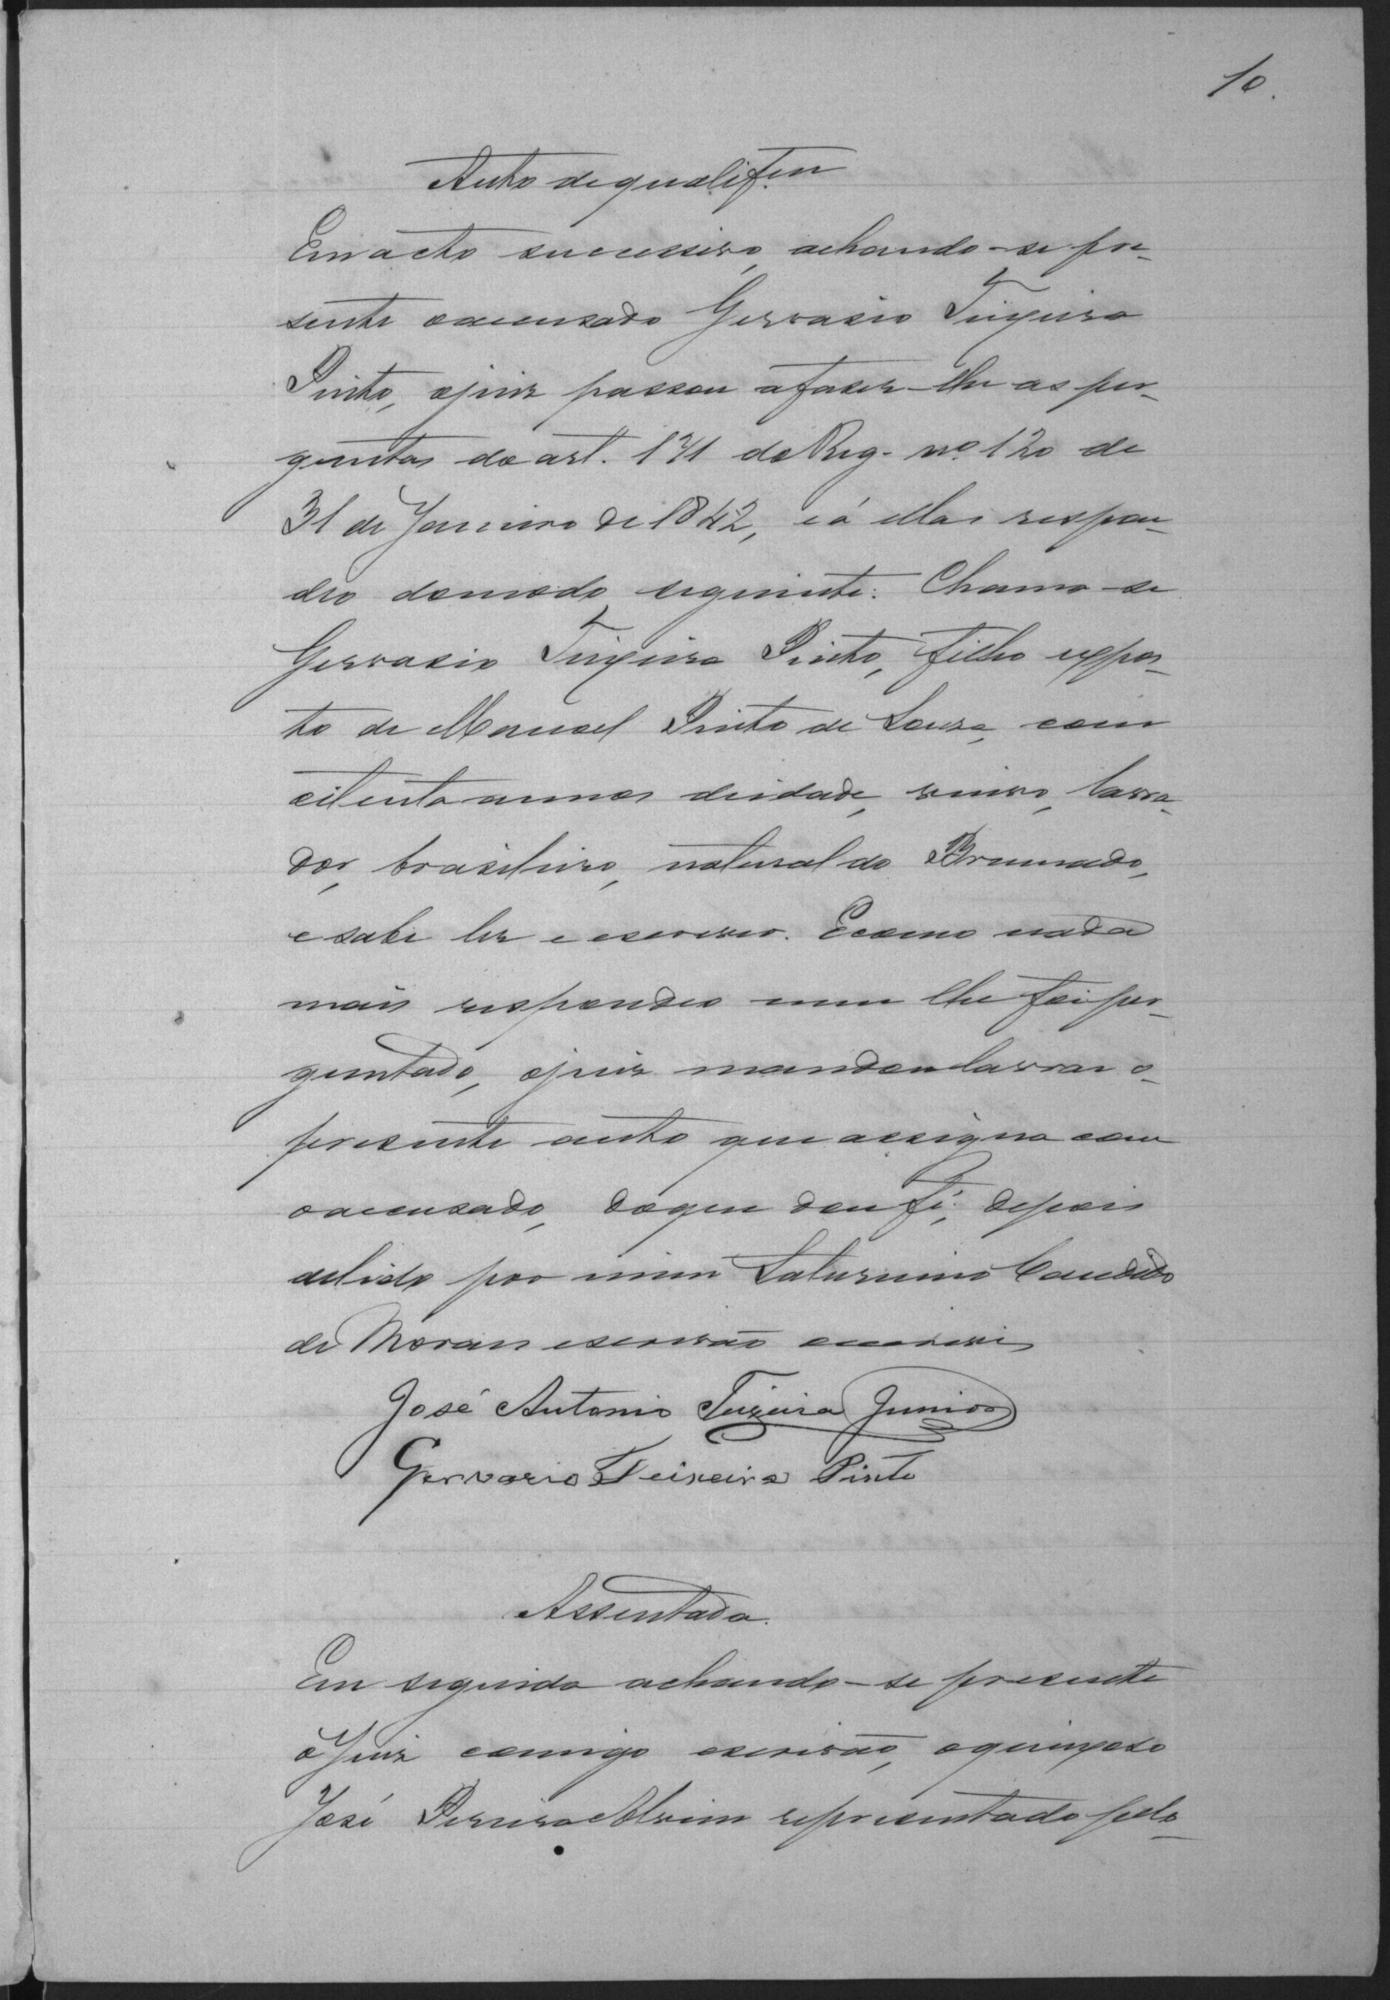 10.
Auto de qualifcam
Em acto successivo, achando-se pre-
sente o accusado Gervasio Teixeira
Pinto, o juiz passou a faser-lhe as per-
guntas do art. 171 do Reg. nº 120 de
31 de Janeiro de 1842, e á ellas respon-
deo do modo seguinte: Chama-se
Gervasio Teixeira Pinto, filho expos-
to de Manoel Pinto de Souza, com
oitenta annos de idade, viuvo, lavra-
dor, brasileiro, natural do Brumado,
e sabe ler e escrever. E como nada
mais respondeo nem lhe foi per-
guntado, o juiz mandou lavrar o
presente auto que assigna com
o accusado, do que dou fé; depois
de lido por mim Saturnino Candido
de Moraes escrivão o escrevi
José Antonio Teixeira Junior
Gervazio Teixeira Pinto
Assentada.
Em seguida achando-se presente
o Juiz comigo escrivão, o queixoso
José Pereira Alvim representado pelo